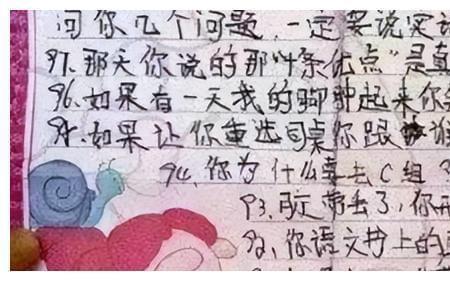 问你几个问题,一定要说实话
97.那天你说的那"条优点"是真
96.如果有一天我的脚肿起来你
95.如果让你重选同桌你跟谁
94.你为什么要去C组?
93.丢了,你
92.你语文书上的